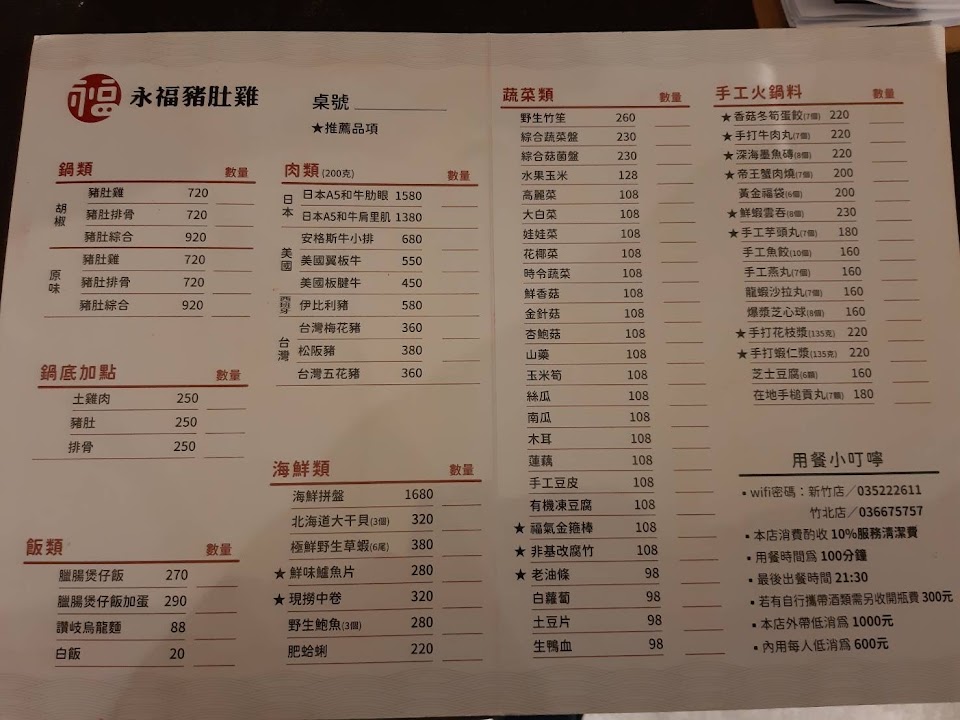 福 永福豬肚雞
桌號
★推薦品項
鍋類 數量
胡椒
豬肚雞 720
豬肚排骨 720
豬肚綜合 920
原味
豬肚雞 720
豬肚排骨 720
豬肚綜合 920
鍋底加點 數量
土雞肉 250
豬肚 250
排骨 250
飯類 數量
臘腸煲仔飯 270
臘腸煲仔飯加蛋 290
讚岐烏龍麵 88
白飯 20
肉類 (200克) 數量
日本
日本A5和牛肋眼 1580
日本A5和牛肩里肌 1380
美國
安格斯牛小排 680
美國翼板牛 550
美國板腱牛 450
西班牙
伊比利豬 580
台灣
台灣梅花豬 360
松阪豬 380
台灣五花豬 360
海鮮類 數量
海鮮拼盤 1680
北海道大干貝(3個) 320
極鮮野生草蝦(6尾) 380
★鮮味鱸魚片 280
★現撈中卷 320
野生鮑魚(3個) 280
肥蛤蜊 220
蔬菜類 數量
野生竹笙 260
綜合蔬菜盤 230
綜合菇菌盤 230
水果玉米 128
高麗菜 108
大白菜 108
娃娃菜 108
花椰菜 108
時令蔬菜 108
鮮香菇 108
金針菇 108
杏鮑菇 108
山藥 108
玉米筍 108
絲瓜 108
南瓜 108
木耳 108
蓮藕 108
手工豆皮 108
有機凍豆腐 108
★福氣金箍棒 108
★非基改腐竹 108
★老油條 98
白蘿蔔 98
土豆片 98
生鴨血 98
手工火鍋料 數量
★香菇冬筍蛋餃(7個) 220
★手打牛肉丸(7個) 220
★深海墨魚磚(8個) 220
★帝王蟹肉燒(7個) 200
黃金福袋(6個) 200
★鮮蝦雲吞(8個) 230
★手工芋頭丸(7個) 180
手工魚餃(10個) 160
手工燕丸(7個) 160
龍蝦沙拉丸(7個) 160
爆漿芝心球(8個) 160
★手打花枝漿(135克) 220
★手打蝦仁漿(135克) 220
芝士豆腐(6顆) 160
在地手槌貢丸(7顆) 180
用餐小叮嚀
▪wifi密碼：新竹店／035222611
竹北店／036675757
▪本店消費酌收 10%服務清潔費
▪用餐時間為 100分鐘
▪最後出餐時間 21:30
▪若有自行攜帶酒類需另收開瓶費 300元
▪本店外帶低消為 1000元
▪內用每人低消為 600元